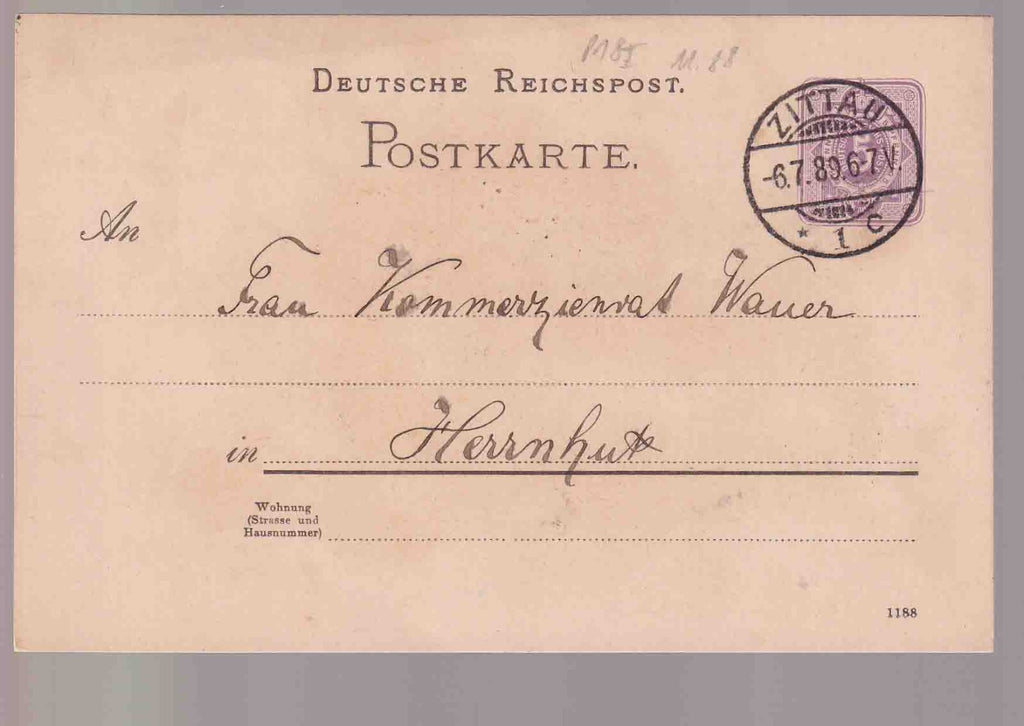 P18I 11.88
DEUTSCHE REICHSPOST.
POSTKARTE.
ZITTAU
-6.7.89.6-7V.
* 1 C
An
Frau Kommerzienrat Wauer
in Herrnhut
Wohnung
(Strasse und
Hausnummer)
1188